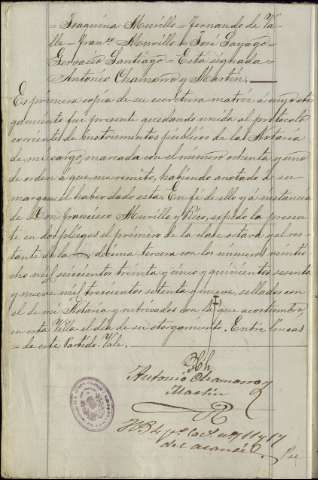 = Joaquina Murillo = Fernando de la Va
lle = Fran.co Murillo = José Zayago =
Gervacio Santiago = Está signado =
Antonio Chamorro y Martin.
Es primera copia de su escritura matriz á cuyo otor
gamiento fui presente quedando unida al protocolo
corriente de instrumentos públicos de la Notaría
de mi cargo, marcada con el numero ochenta y uno
de orden á que me remito, habiendo anotado de su
margen el haber dado esta. En fé de ello y á instancia
de Don Francisco Murillo y Rico, espido la presen
te en dos pliegos el primero de la clase octava y el res
tante de la décima tercera con los números veinti
ocho mil seiscientos treinta y cinco y quinientos sesenta
y nueve mil trescientos setenta y nueve, sellados con
el de mi Notaría y rubricados con la que acostumbro,
en esta Villa el día de su otorgamiento. Entre lineas
= de este Partido. Vale.
Antonio Chamorro y
Martin
del arancel